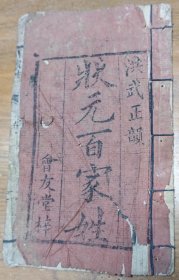 洪武正韻
狀元百家姓
會友堂梓